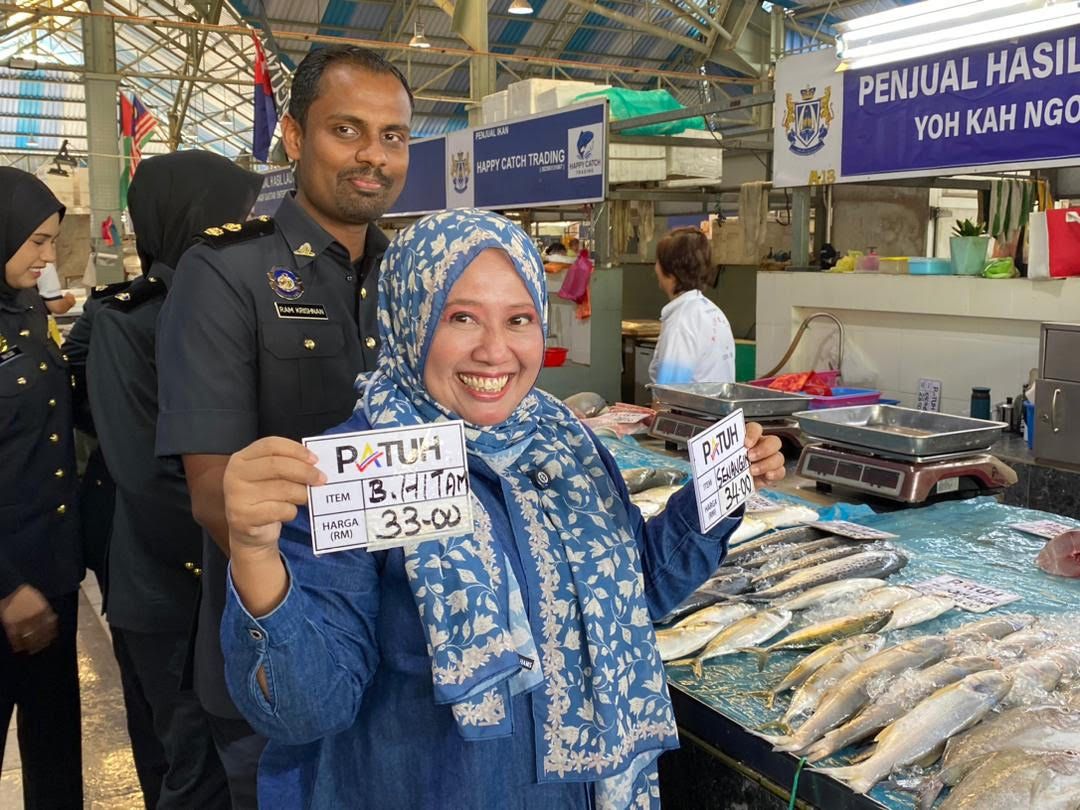 PENJUAL HASIL
YOH KAH NGO
A-13
PENJUAL IKAN
HAPPY CATCH TRADING
HAPPY CATCH
TRADING
RAM KRISHNAN
PATUH
ITEM B. HITAM
HARGA
(RM) 33-00
PATUH
ITEM SENANGIN
HARGA
(RM) 34-00